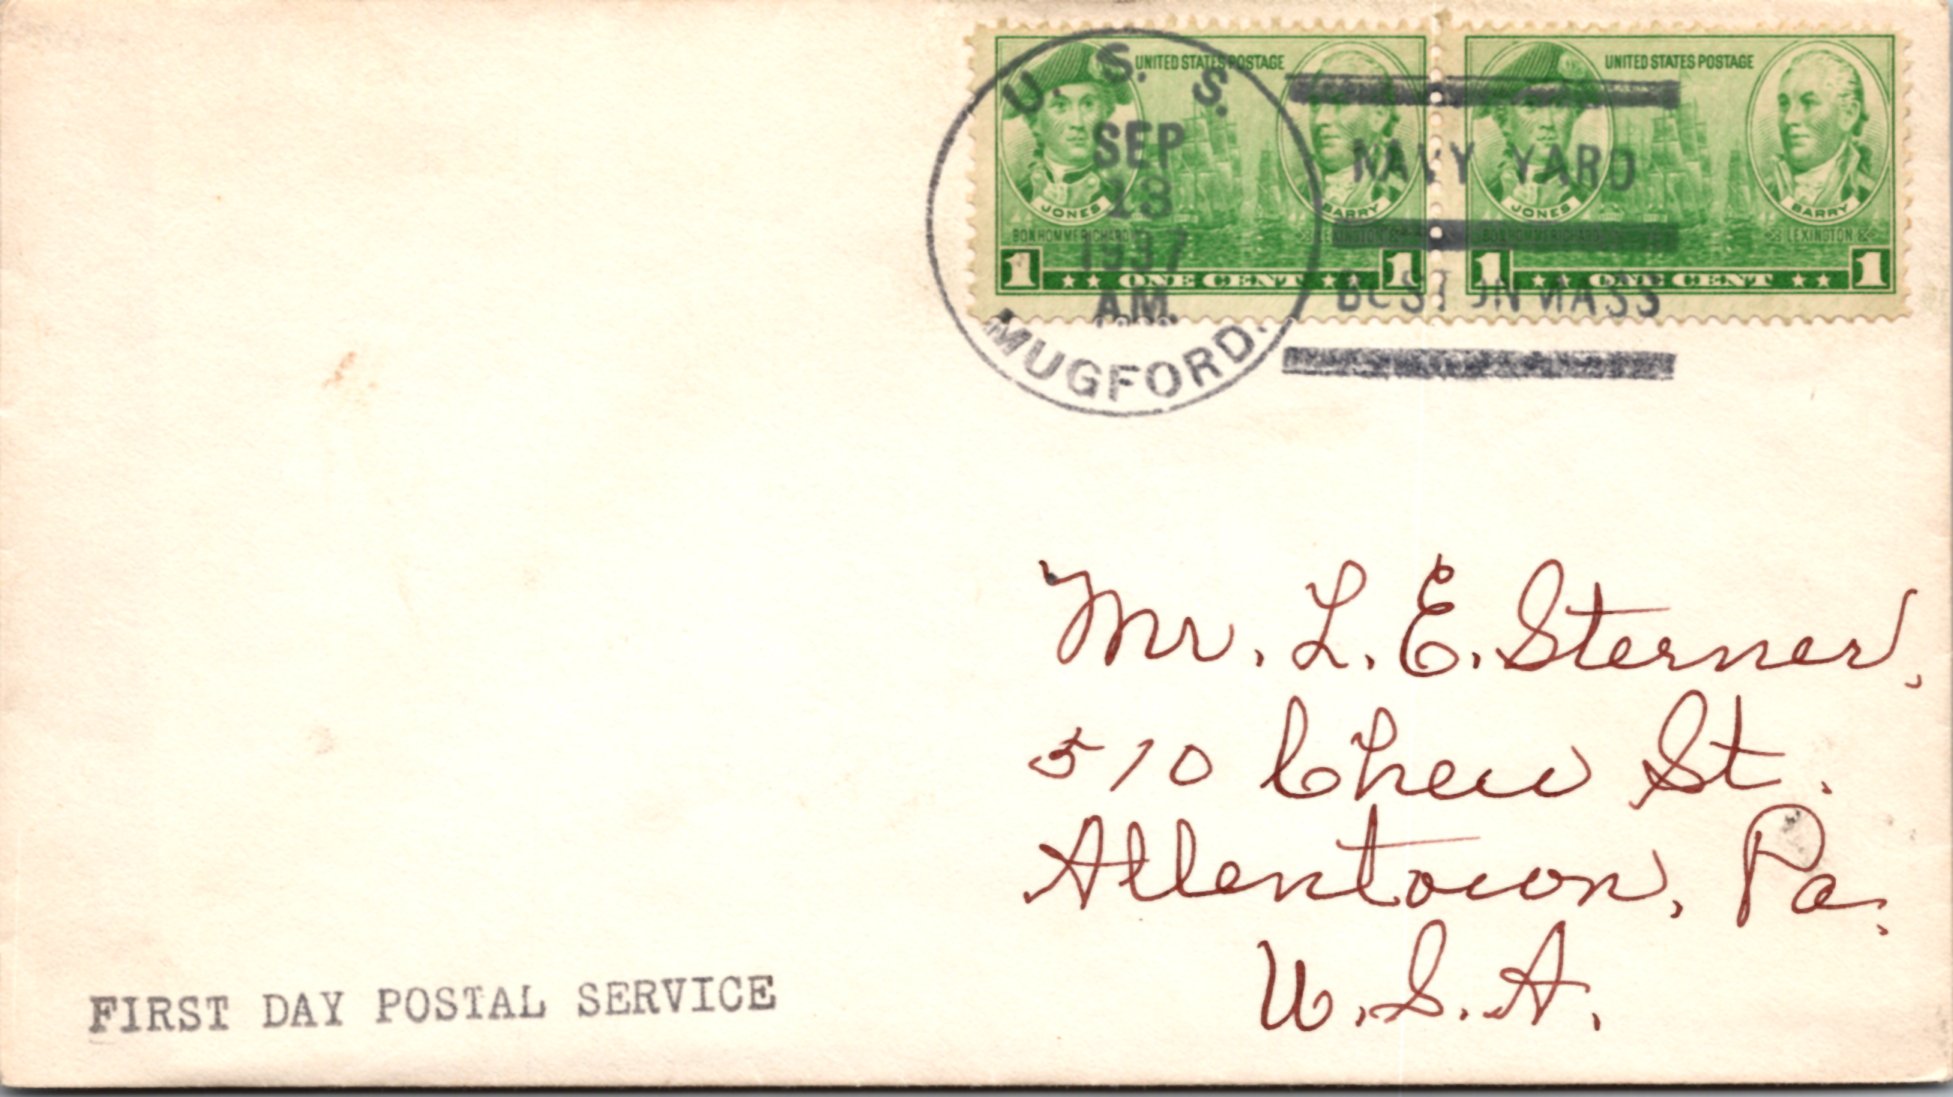 UNITED STATES POSTAGE
UNITED STATES POSTAGE
JONES
BARRY
JONES
BARRY
BONHOMME RICHARD
LEXINGTON
BONHOMME RICHARD
LEXINGTON
1 ONE CENT 1
1 ONE CENT 1
U. S. S.
SEP
13
1937
A.M.
MUGFORD.
NAVY YARD
BOSTON MASS
Mr. L. E. Sterner,
510 Chew St.
Allentown, Pa.
U.S.A.
FIRST DAY POSTAL SERVICE